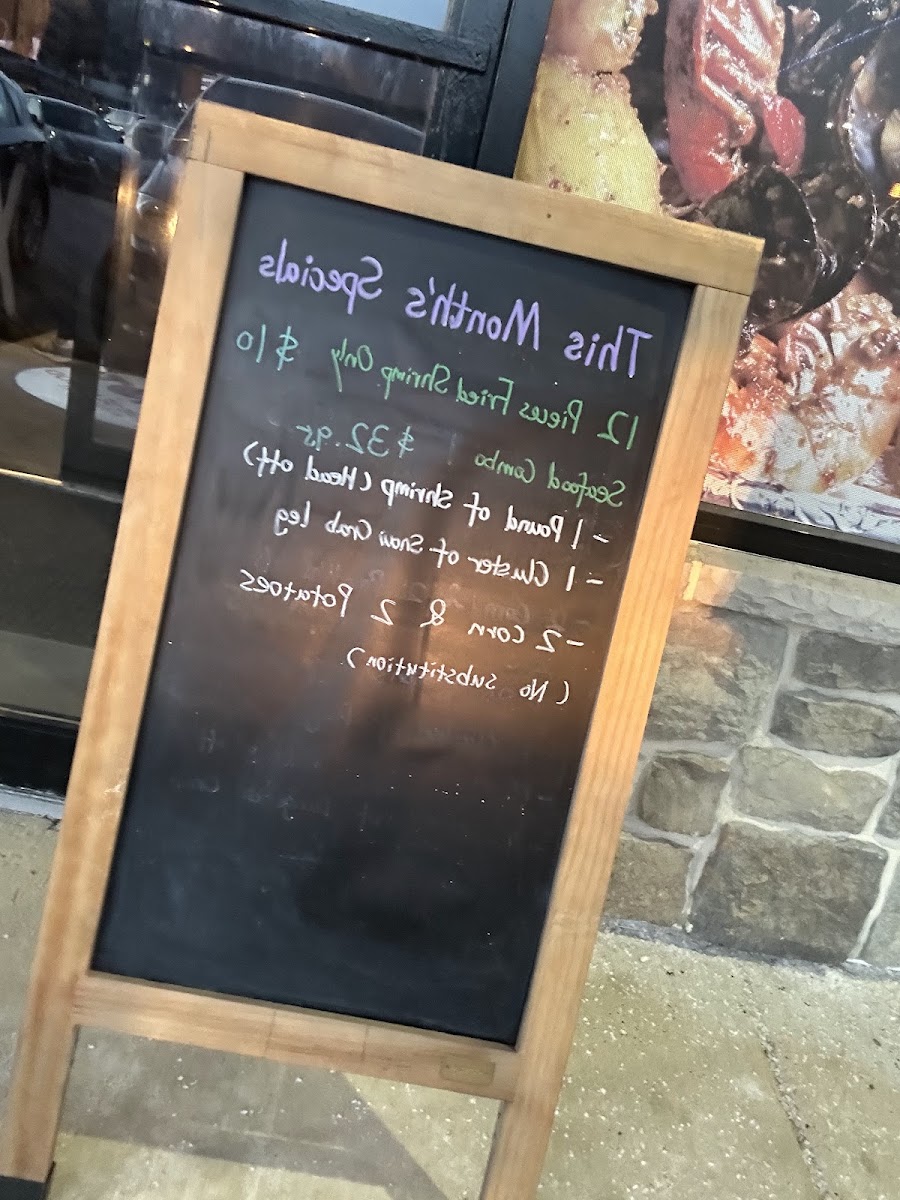 This Month's Specials
12 Pieces Fried Shrimp Only $10
Seafood Combo $32.95
- 1 Pound of Shrimp (Head off)
- 1 Cluster of Snow Crab Leg
- 2 Corn & 2 Potatoes
(No substitution)